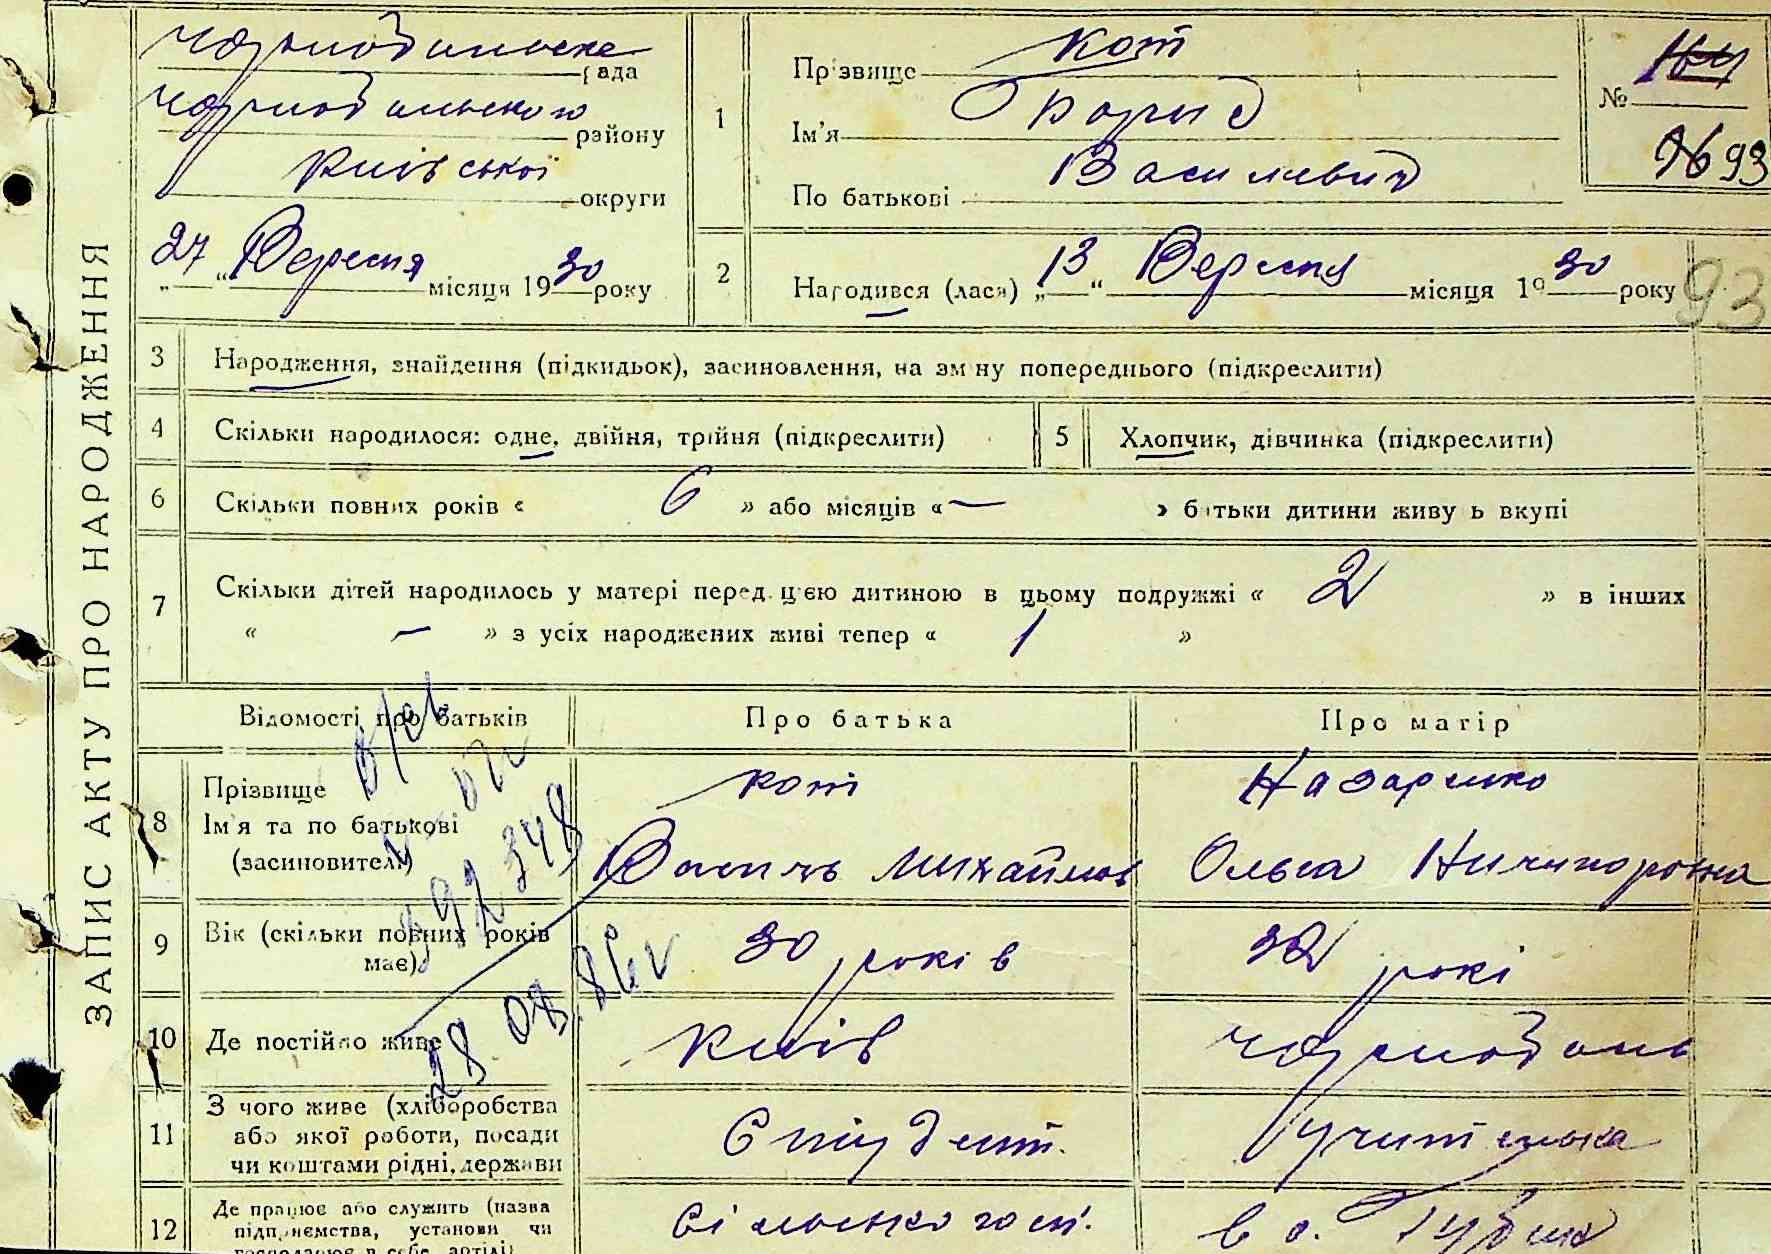 ЗАПИС АКТУ ПРО НАРОДЖЕННЯ
Чорнобильська рада
Чорнобильського району
Київської округи
„27“ Вересня місяця 1930 року
1
Прізвище Кот
Ім'я Борис
По батькові Василевич
№
93
2
Народився (лася) „13“ Вересня місяця 1930 року
93
3 Народження, знайдення (підкидьок), засиновлення, на зміну попереднього (підкреслити)
4 Скільки народилося: одне, двійня, трійня (підкреслити)
5 Хлопчик, дівчинка (підкреслити)
6 Скільки повних років « 6 » або місяців « — » батьки дитини живуть вкупі
7 Скільки дітей народилось у матері перед цією дитиною в цьому подружжі « 2 » в інших
« — » з усіх народжених живі тепер « 1 »
Відомості про батьків Про батька Про матір
8 Прізвище
Ім'я та по батькові
(засиновителі)
Кот
Василь Михайлов
Назаренко
Ольга Ничипоровна
892348
28.08.86
9 Вік (скільки повних років
має)
30 років
32 рокі
10 Де постійно живе
Київ
Чорнобиль
11 З чого живе (хліборобства
або якої роботи, посади
чи коштами рідні, держави
Студент.
Учителька
12 Де працює або служить (назва
підприємства, установи чи
господарює в себе, артілі)
Сільського сп.
в с.